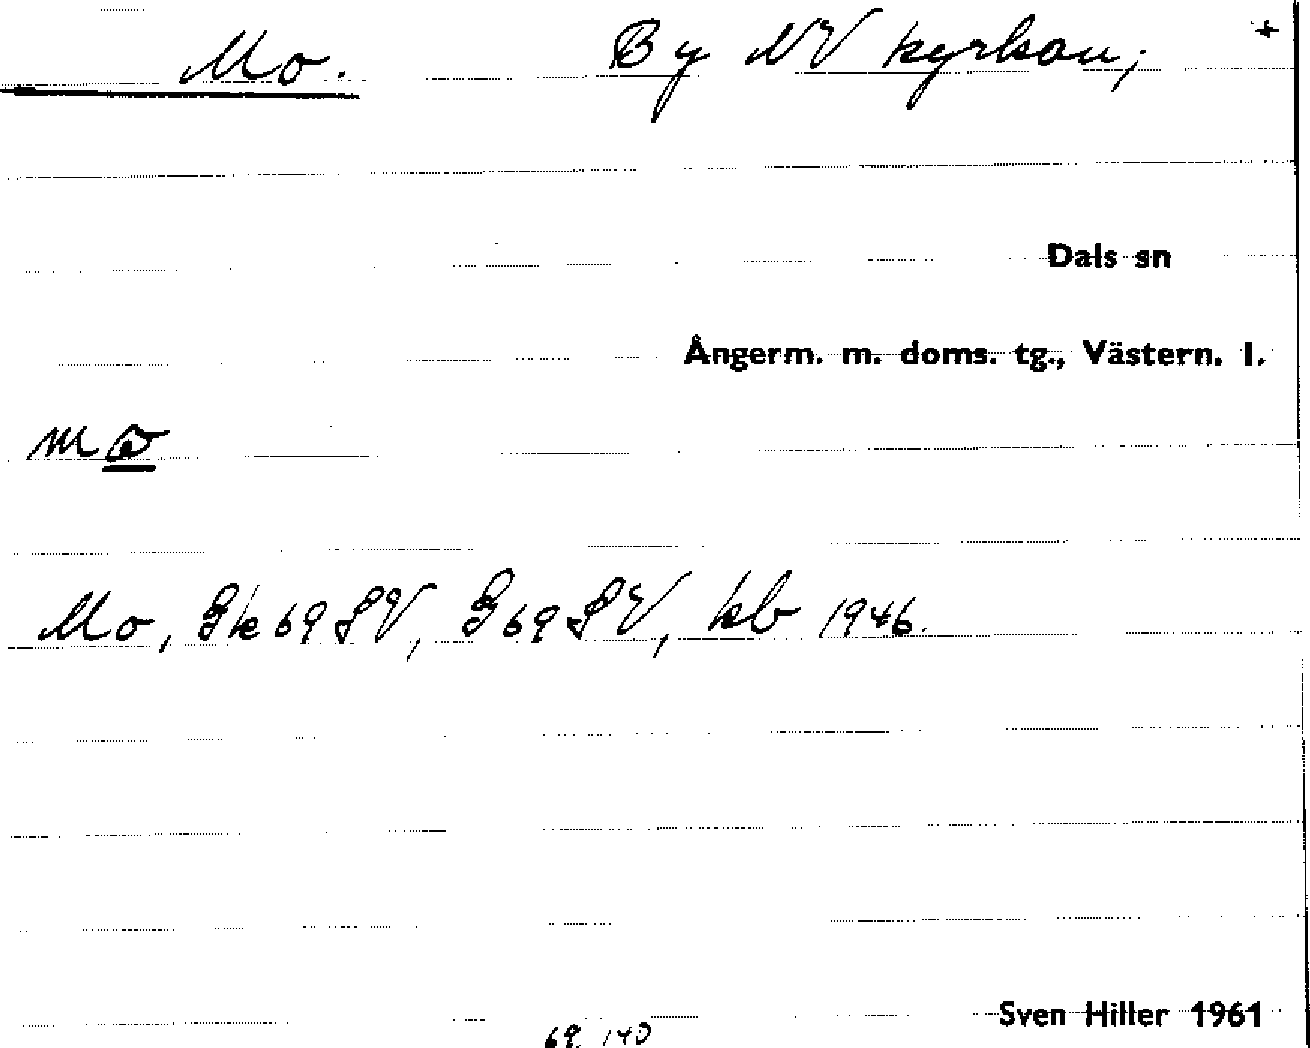 Mo. By NV kyrkan; +
Dals sn
Ångerm. m. doms. tg., Västern. l.
Mo, Gk 69 SV, G 69 SV, kb 1946.
Sven Hiller 1961
69 140